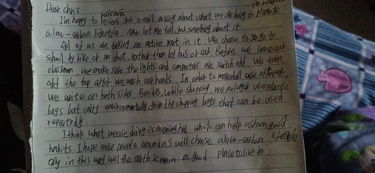 Dear Chris
I'm happy to receive your e-mail asking about what we are doing to
a low-carbon lifestyle. Now let me tell you something about it.
All of us are taking an active part in it. We chose to go to
school by bike or on foot rather than by bus or car. Before we leave our
classroom, we make sure the lights and computers are switched off. We turn
off the tap after we wash our hands. In order to make full use of paper,
we write on both sides. Besides, while shopping, we not use plastic
bags but only environmentally friendly shopping bags that can be used
repeatedly.
I think what we are doing is meaningful which can help us form good
habits. I hope more people around us will choose a low-carbon lifestyle
only in this way will the earth remain a good place to live in